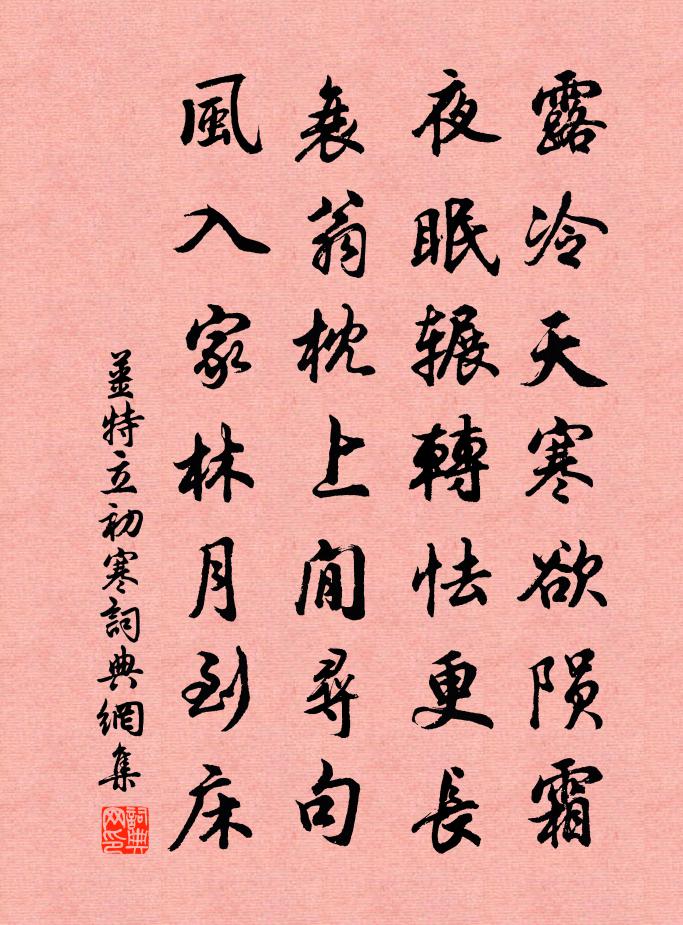 露冷天寒欲陨霜
夜眠辗轉怯更長
衰翁枕上閒尋句
風入家林月到床
姜特立初寒詞典網集
詞典网印